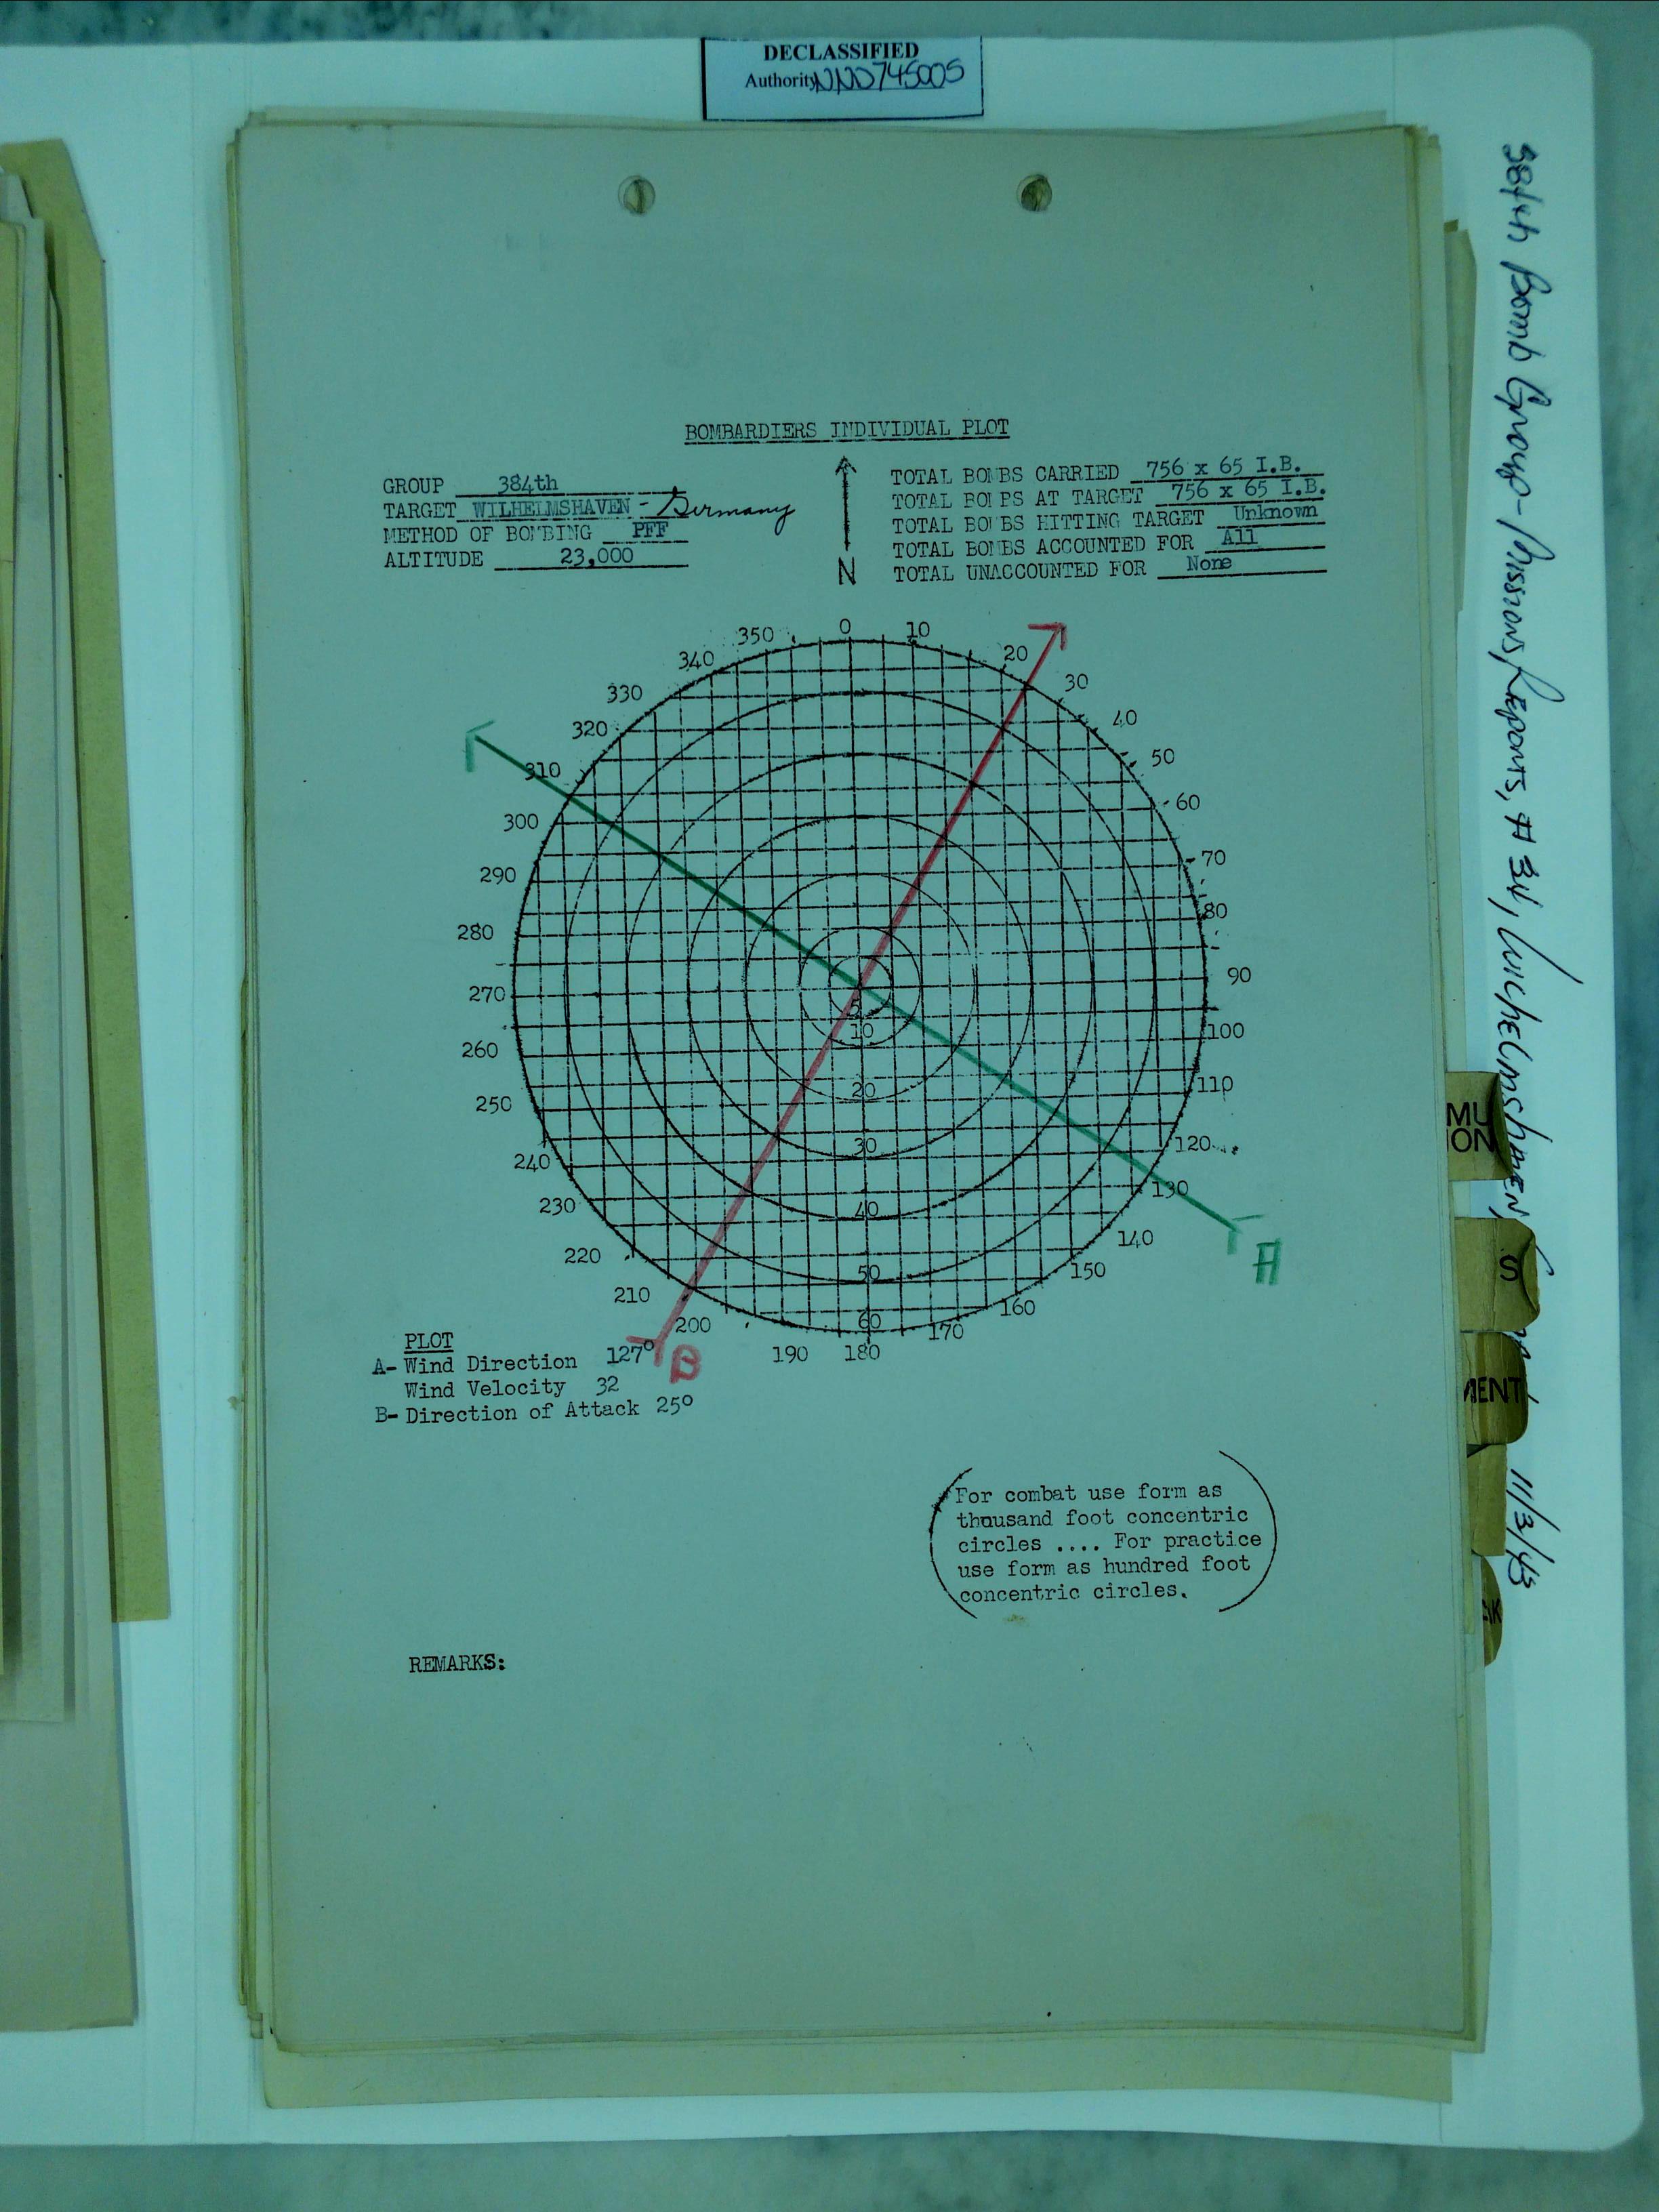 DECLASSIFIED
Authority NND745005
BOMBARDIERS INDIVIDUAL PLOT
GROUP 384th
TARGET WILHELMSHAVEN - Germany
METHOD OF BOMBING PFF
ALTITUDE 23,000
N
TOTAL BOMBS CARRIED 756 x 65 I.B.
TOTAL BOMBS AT TARGET 756 x 65 I.B.
TOTAL BOMBS HITTING TARGET Unknown
TOTAL BOMBS ACCOUNTED FOR All
TOTAL UNACCOUNTED FOR None
0
10
20
30
40
50
60
70
80
90
100
110
120
130
140
150
160
170
180
190
200
210
220
230
240
250
260
270
280
290
300
310
320
330
340
350
5
10
20
30
40
50
60
A
B
PLOT
A- Wind Direction 127°
Wind Velocity 32
B- Direction of Attack 25°
(For combat use form as
thousand foot concentric
circles .... For practice
use form as hundred foot
concentric circles.)
REMARKS:
384th Bomb Group - Mission Reports, # 34, Wilhelmshaven, 11/3/43
MU
ION
S
MENT
AK